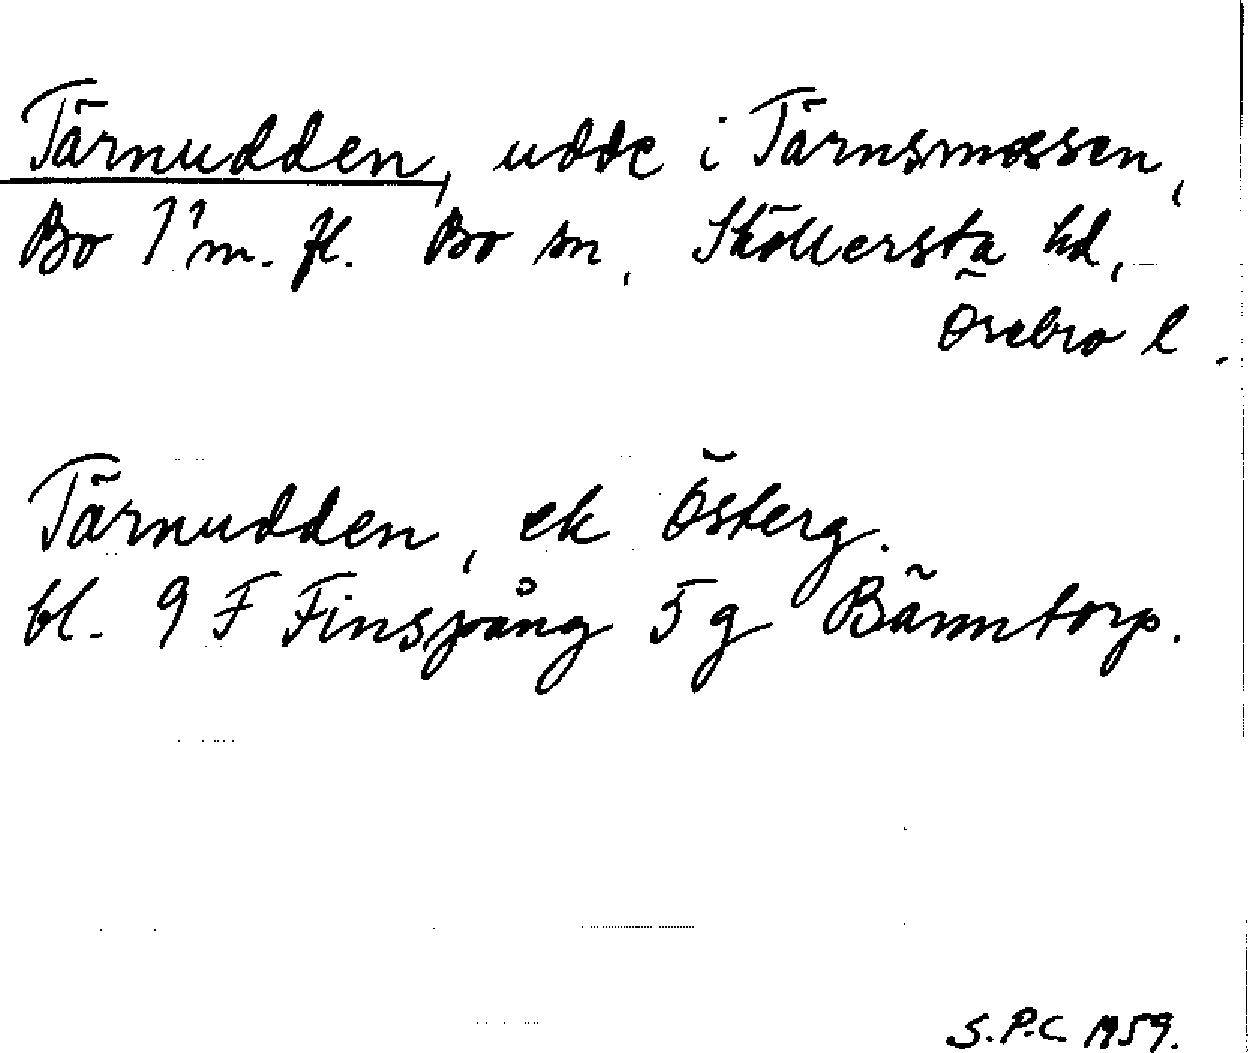 Tärnudden, udde i Tärnsmossen,
Bo 1¹ m. fl. Bo sn, Sköllersta hd,
Örebro l.
Tärnudden, ek Österg.
bl. 9 F Finspång 5 g Bänntorp.
S.P.C. 1959.